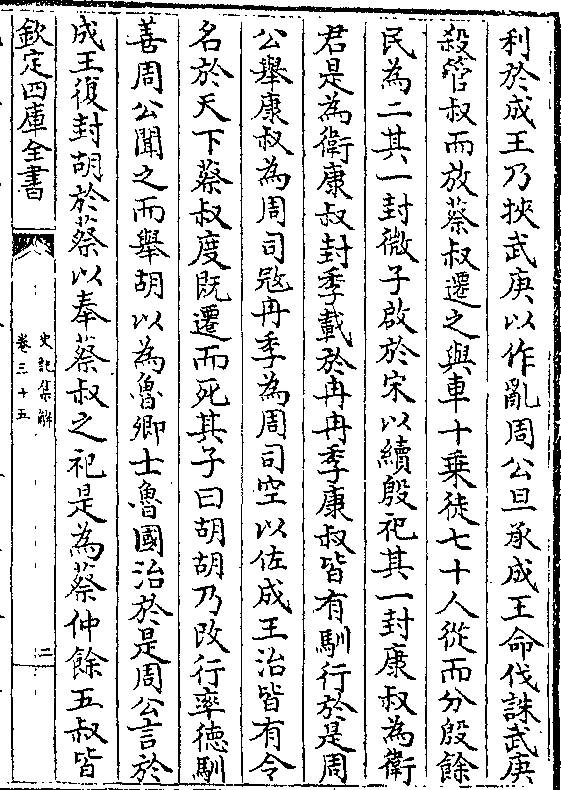 利於成王乃挾武庚以作亂周公旦承成王命伐誅武庚
殺管叔而放蔡叔遷之與車十乗徒七十人從而分殷餘
民為二其一封微子啟於宋以續殷祀其一封康叔為衛
君是為衛康叔封季載於冉冉季康叔皆有馴行於是周
公舉康叔為周司冦冉季為周司空以佐成王治皆有令
名於天下蔡叔度既遷而死其子曰胡胡乃改行率徳馴
善周公聞之而舉胡以為魯卿士魯國治於是周公言於
成王復封胡於蔡以奉蔡叔之祀是為蔡仲餘五叔皆
欽定四庫全書
史記集解
卷三十五
二